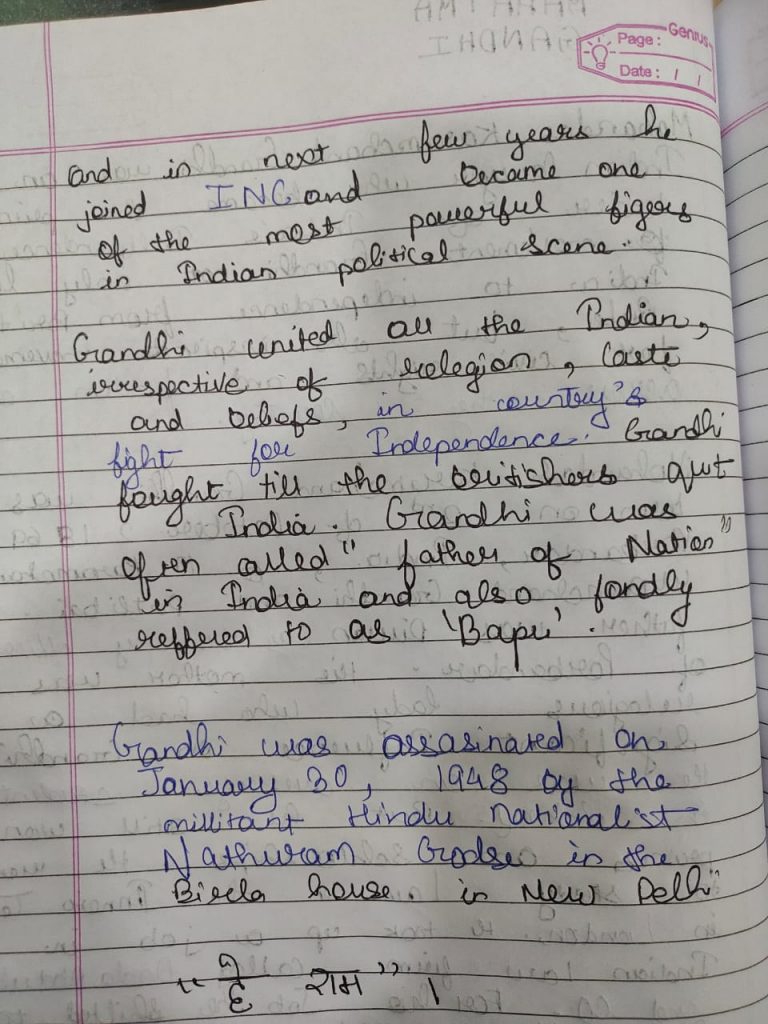 Genius
Page:
Date: / /
and in next few years he
joined INC and became one
of the most powerful figers
in Indian political scene.
Gandhi united all the Indian,
irrespective of relegion, caste
and beliefs, in country's
fight for Independence. Gandhi
fought till the britishers quit
India. Gandhi was
often called "father of Nation"
in India and also fondly
reffered to as 'Bapu'.
Gandhi was assasinated on
January 30, 1948 by the
millitant Hindu nationalist
Nathuram Godse in the
Birla house. in New Delhi
"हे राम" ।